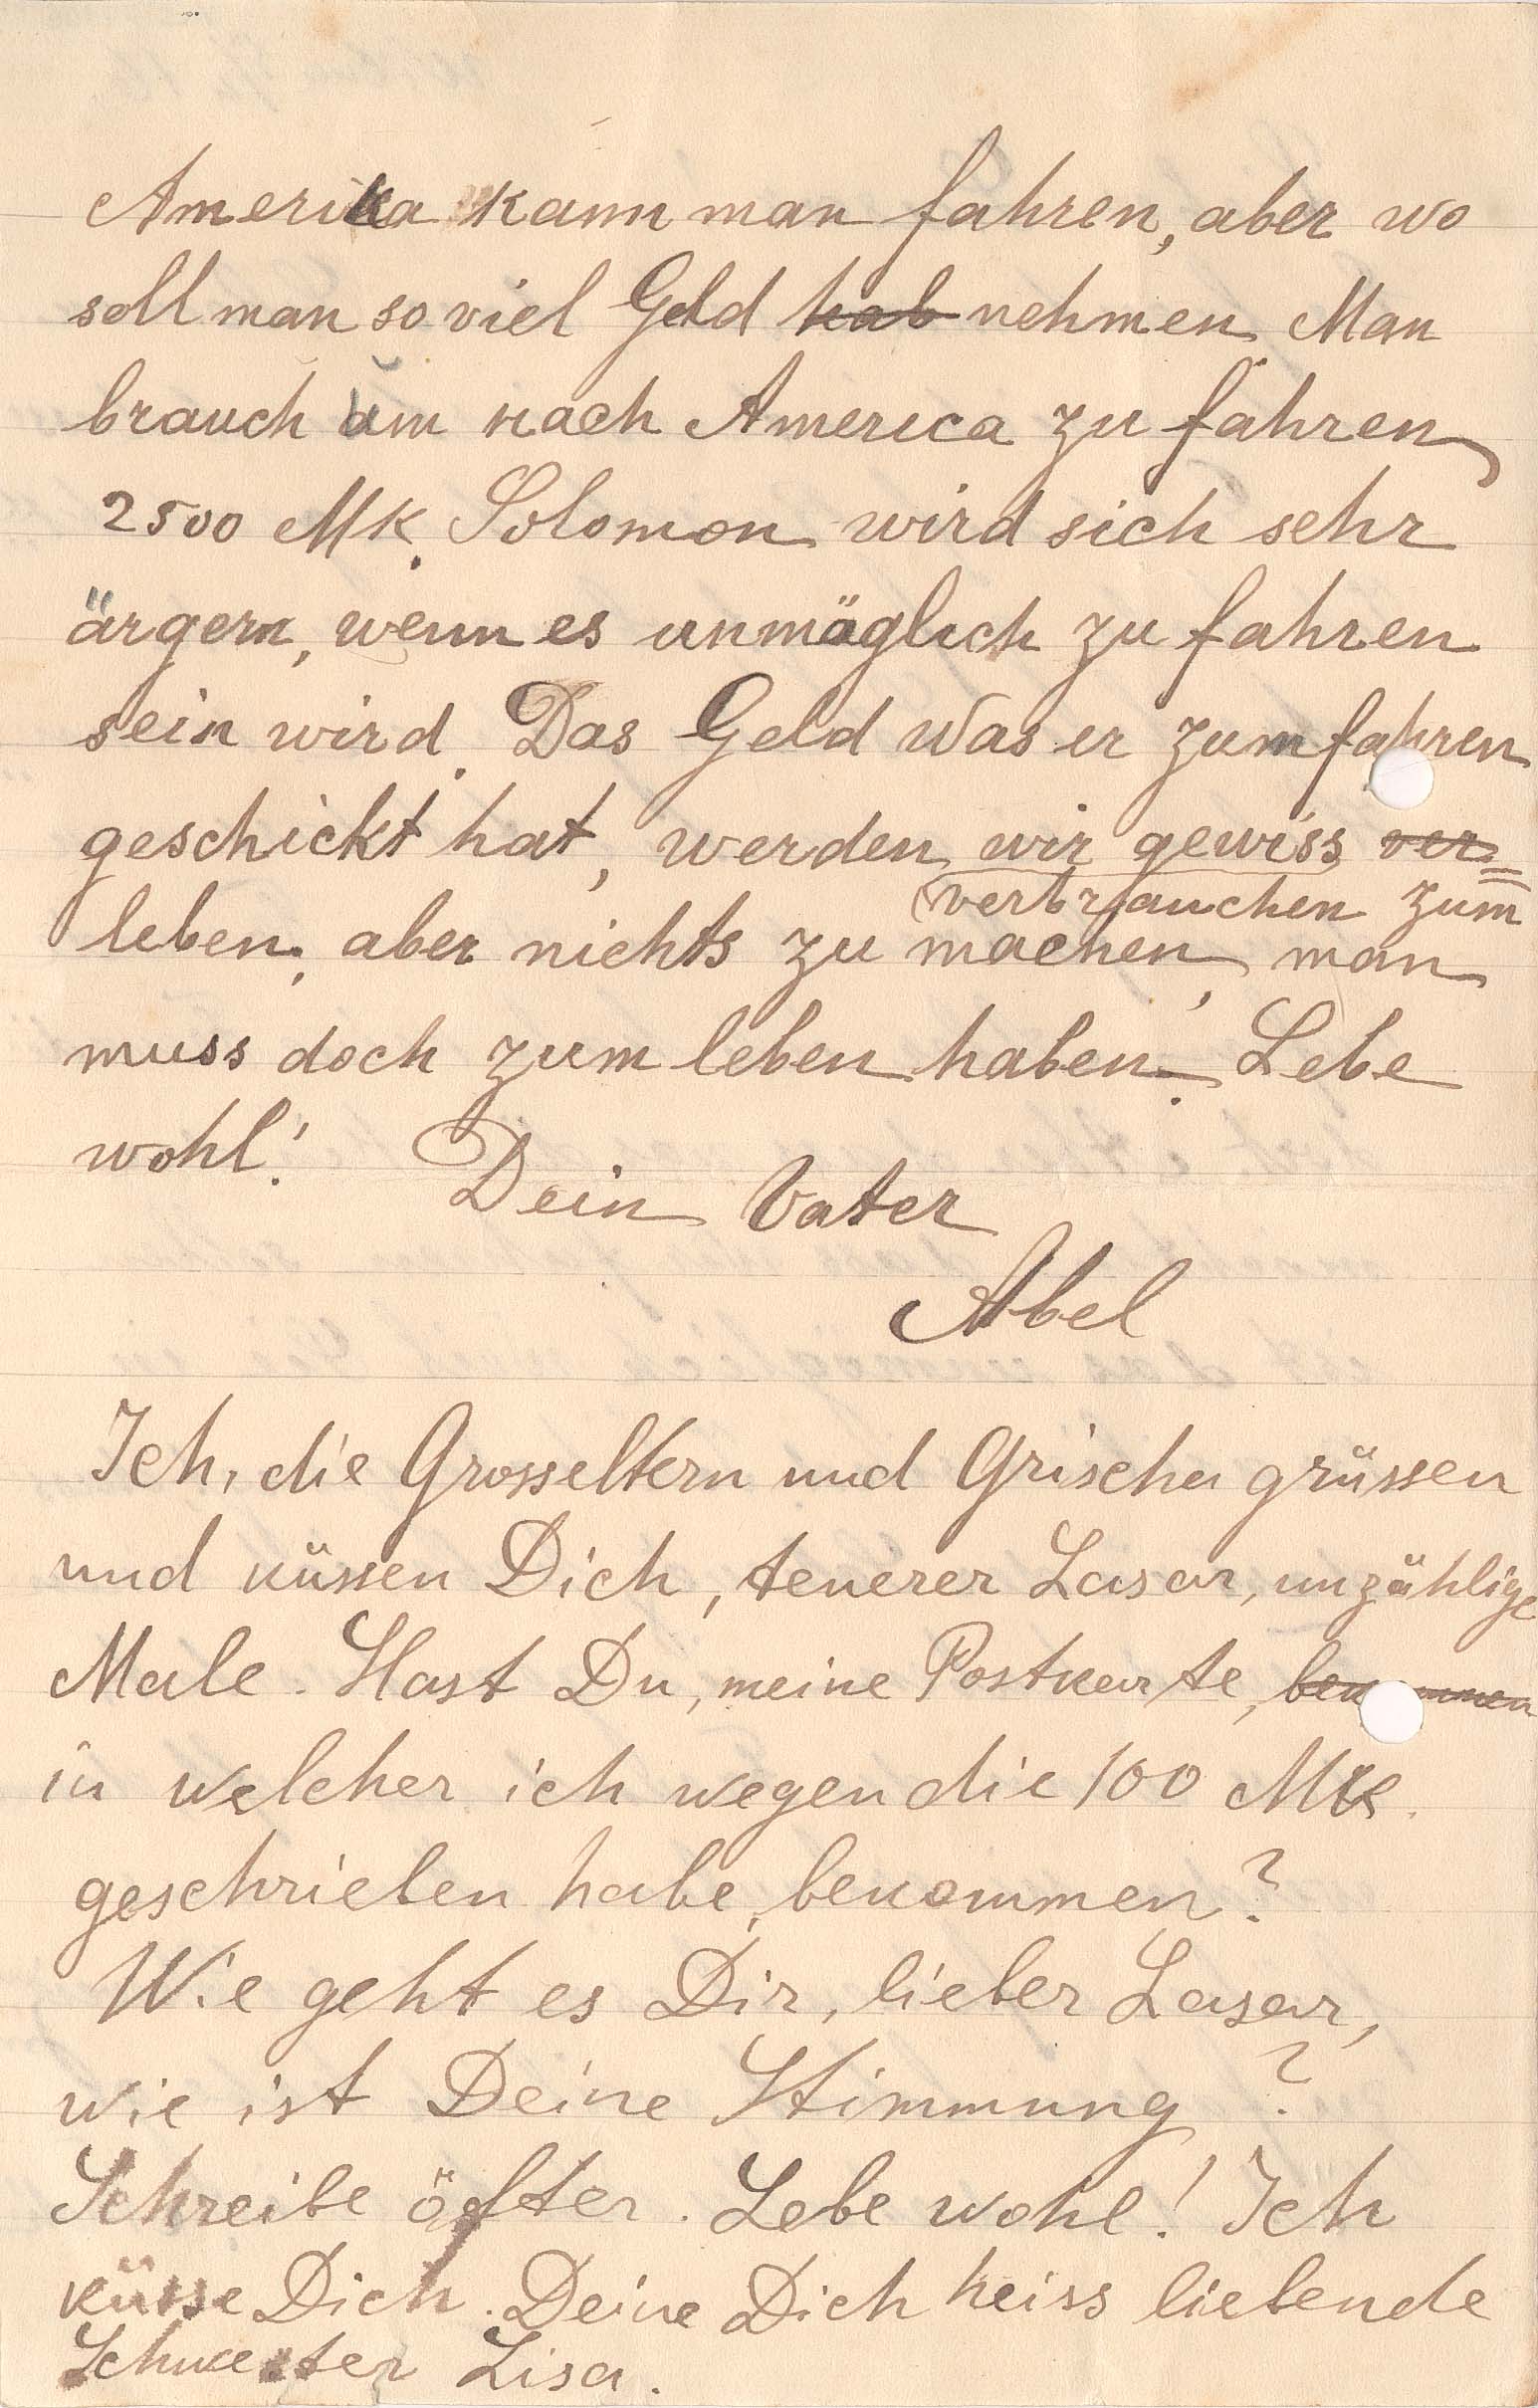 Amerika kann man fahren, aber wo
soll man so viel Geld hab nehmen. Man
brauch um nach America zu fahren
2500 Mk. Solomon wird sich sehr
ärgern, wenn es unmöglich zu fahren
sein wird. Das Geld was er zum fahren
geschickt hat, werden wir gewiss ver=
(verbrauchen zum
leben, aber nichts zu machen, man
muss doch zum leben haben. Lebe
wohl! Dein Vater
Abel
Ich, die Grosseltern und Grischa grüssen
und küssen Dich, teuerer Lasar, unzählige
Male. Hast Du, meine Postkarte, bekommen
in welcher ich wegen die 100 Mk.
geschrieben habe, bekommen?
Wie geht es Dir, lieber Lasar,
wie ist Deine Stimmung?
Schreibe öfter. Lebe wohl! Ich
küsse Dich. Deine Dich heiss liebende
Schwester Lisa.